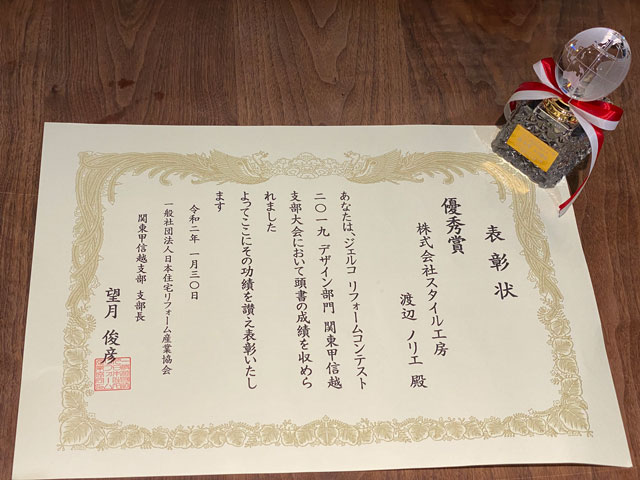 表彰状
優秀賞
株式会社スタイル工房
渡辺 ノリエ 殿
あなたは、ジェルコ リフォームコンテスト
二〇一九 デザイン部門 関東甲信越
支部大会において頭書の成績を収めら
れました
よってここにその功績を讃え表彰いたし
ます
令和二年 一月三〇日
一般社団法人日本住宅リフォーム産業協会
関東甲信越支部 支部長
望月 俊彦